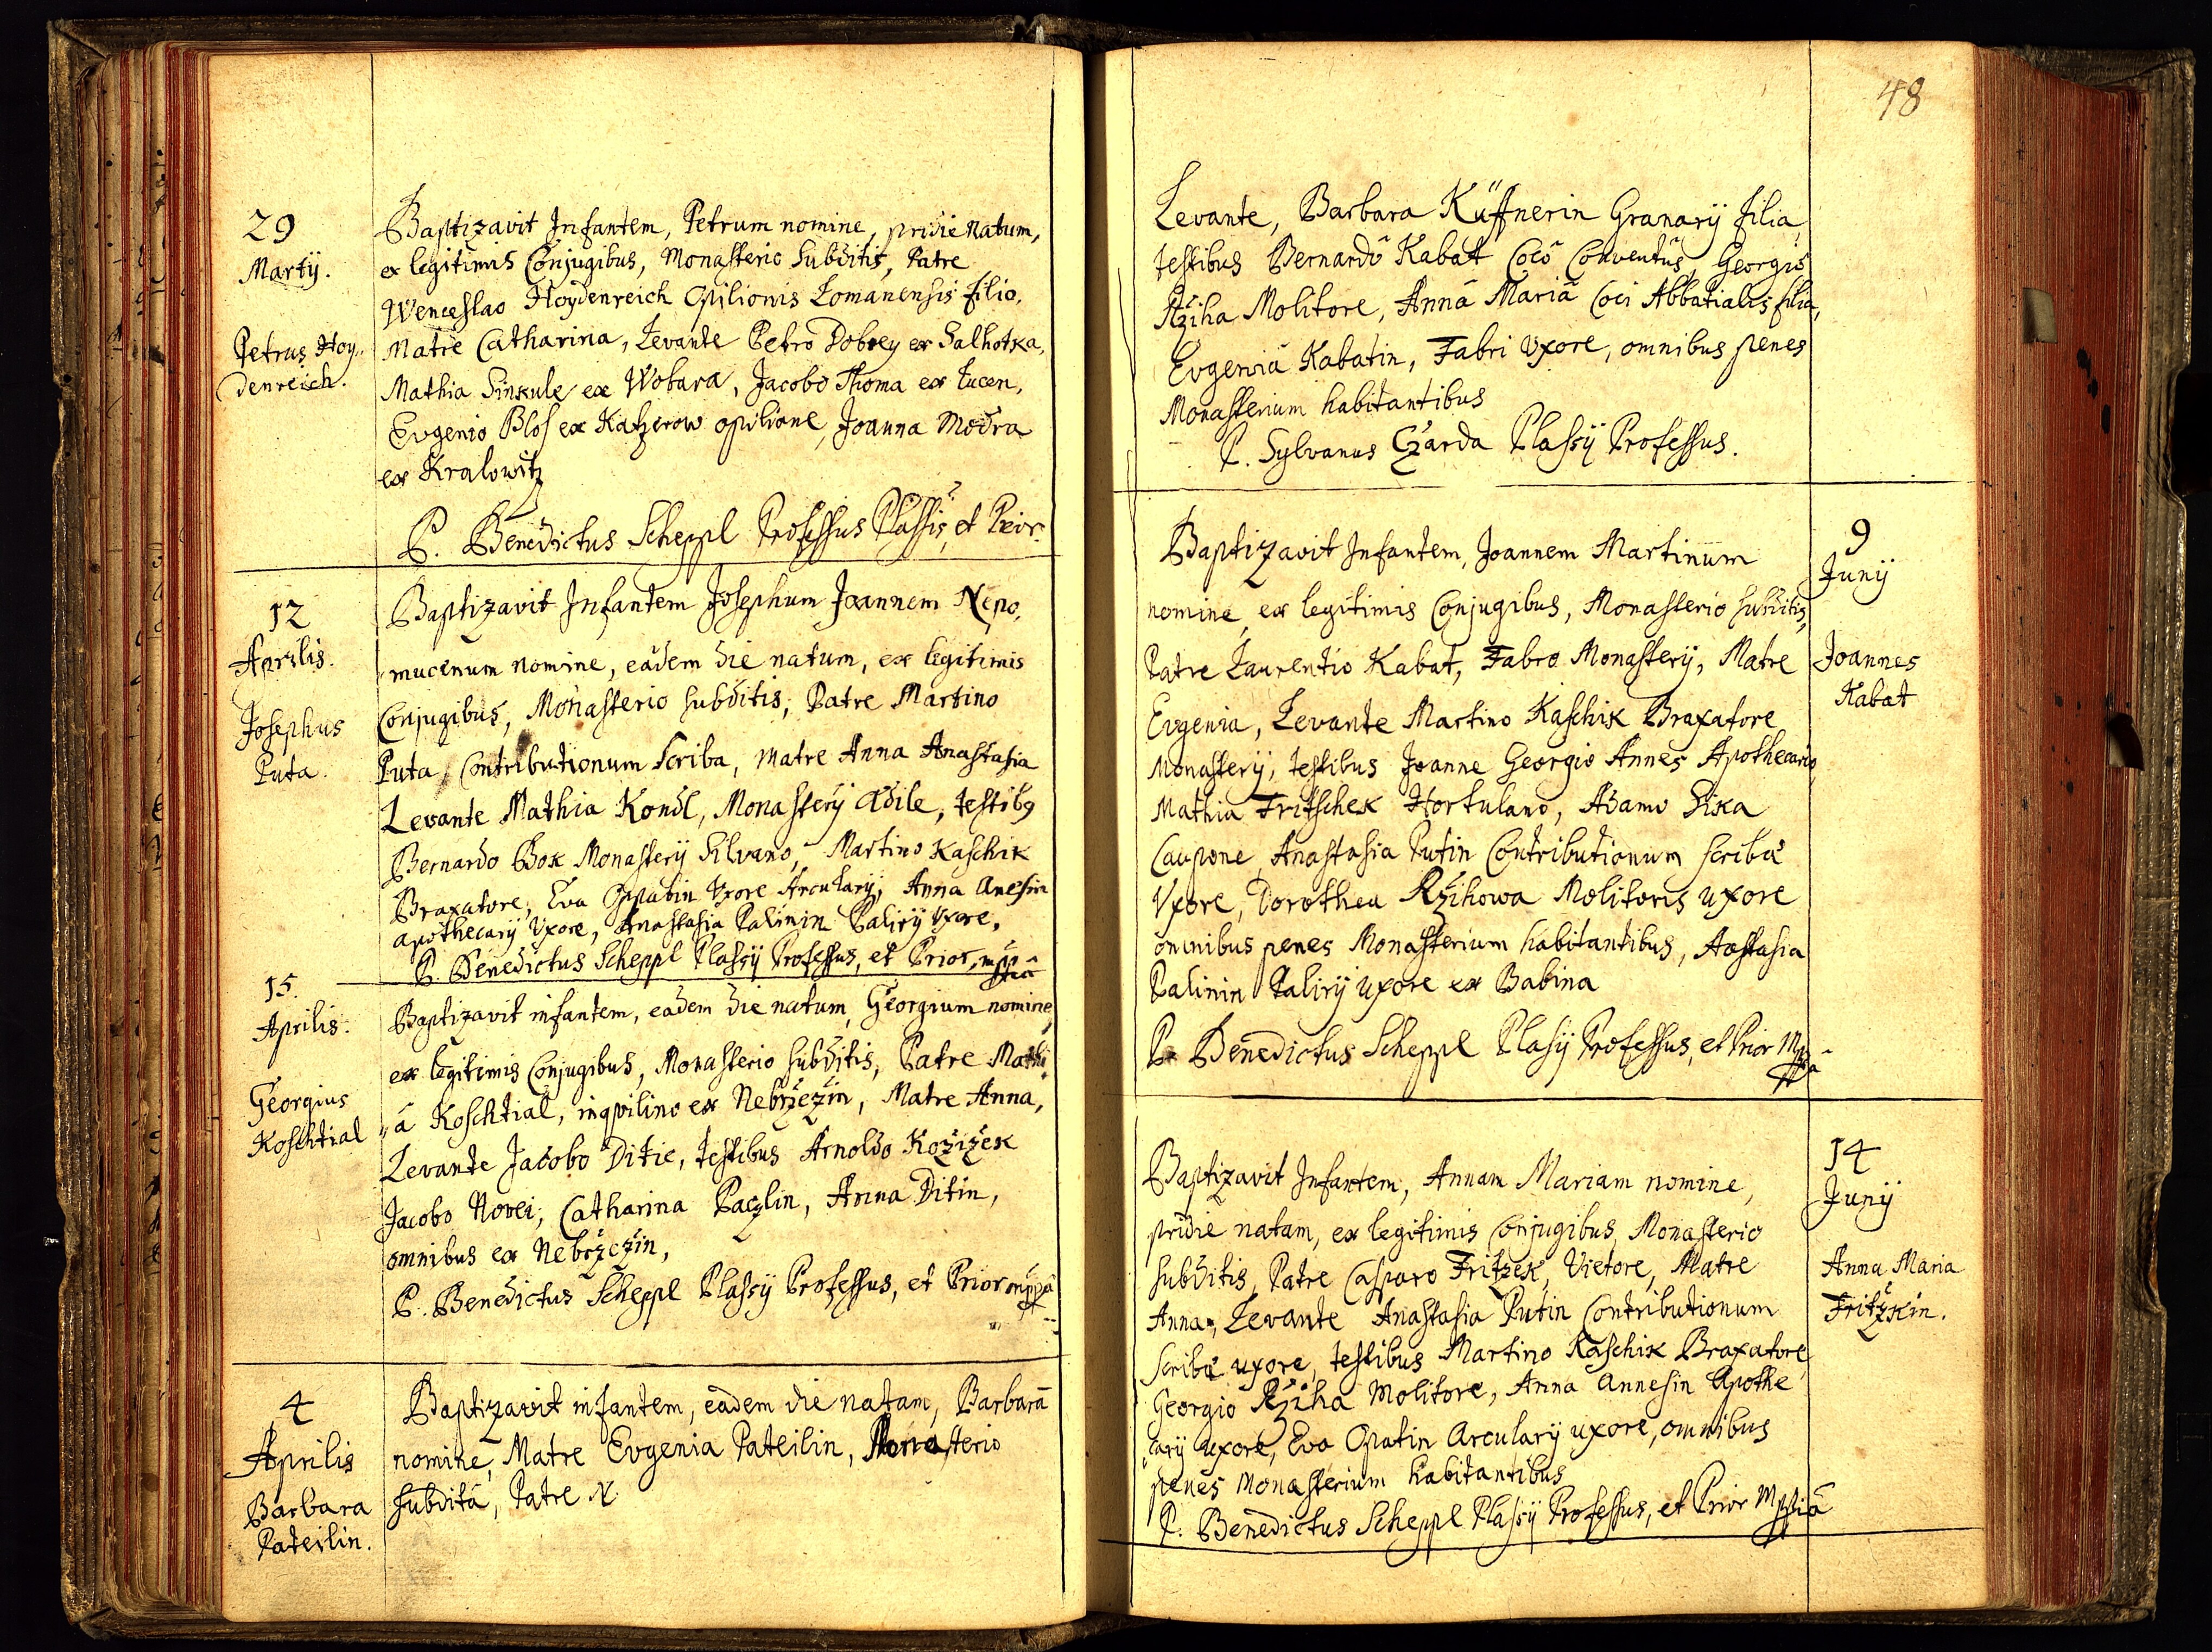 29
Martÿ.
Petrus Hoy„
denreich.
Baptizavit Infantem, Petrum nomine, pridie natum,
ex legitimis Conjugibus, Monasterio Subditis, Patre
Wenceslao Hoydenreich Opilionis Lomanensis filio,
Matre Catharina, Levante Petro Dobrey ex Salhotka,
Mathia Sinkule ex Wobara, Jacobo Thoma ex Lucen,
Evgenio Blos ex Katzerow opilione, Joanna Modra
ex Kralowitz
P. Benedictus Scheppl Professus Plassis, et Prior.
12
Aprilis.
Josephus
Puta.
Baptizavit Infantem Josephum Joannem Nepo„
mucenum nomine, eâdem die natum, ex legitimis
Conjugibus, Monasterio subditis, Patre Martino
Puta, Contributionum Scriba, Matre Anna Anastasia
Levante Mathia Kondl, Monasterÿ Ædile, testibg
Bernardo Bok Monasterÿ Silvano, Martino Kaschik
Braxatore, Eva Oppatin Vxore Arcularÿ, Anna Anesin
apothecarÿ Vxore, Anastasia Palinin Palirÿ Vxore,
P. Benedictus Scheppl Plassÿ Professus, et Prior, mppriâ
15.
Aprilis.
Georgius
Koschtial
Baptizavit infantem, eadem die natum, Georgium nomine,
ex legitimis Conjugibus, Monasterio subditis, Patre Mathi„
„â Koschtial, inqvilino ex Nebržezin, Matre Anna,
Levante Jacobo Ditie, testibus Arnoldo Kožižek
Jacobo Novei, Catharina Paczlin, Anna Ditin,
omnibus ex Nebržezin,
P. Benedictus Scheppl Plassÿ Professus, et Prior mppâ
4
Aprilis
Barbara
Pateilin.
Baptizavit infantem, eâdem die natam, Barbarā
nomine, Matre Evgenia Pateilin, Monasterio
subditâ, Patre N.
48
Levante, Barbara Küffnerin Granarÿ filia,
testibus Bernardô Kabat Cocô Conventûs, Georgiô
Ržiha Molitore, Annâ Mariâ Coci Abbatialis filia,
Evgeniâ Kabatin, Fabri Vxore, omnibus penes
Monasterium habitantibus
P. Sylvanus Czarda Plassÿ Professus.
9
Junÿ
Joannes
Kabat
Baptizavit Infantem, Joannem Martinum
nomine, ex legitimis Conjugibus, Monasterio subditis,
Patre Laurentio Kabat, Fabro Monasterÿ, Matre
Evgenia, Levante Martino Kaschik Braxatore
Monasterÿ, testibus Joanne Georgio Annes Apothecario
Mathia Fritschek Hortulano, Adamo Sika
Caupone, Anastasia Putin Contributionum scribæ
Vxore, Dorothea Ržihowa Molitoris uxore
omnibus penes Monasterium habitantibus, Aastasia
Palinin Palirÿ uxore ex Babina
P. Benedictus Scheppl Plasÿ Professus, et Prior Mppâ
14
Junÿ
Anna Maria
Fritzkin.
Baptizavit Infantem, Annam Mariam nomine,
pridie natam, ex legitimis Conjugibus, Monasterio
subditis, Patre Casparo Fritzek, Vietore, Matre
Anna, Levante Anastasia Putin Contributionum
scribæ uxore, testibus Martino Kaschik Braxatore
Georgio Ržiha Molitore, Anna Annesin Apothe„
„carÿ uxore, Eva Opatin Arcularÿ uxore, omnibus
penes Monasterium habitantibus
P. Benedictus Scheppl Plassÿ Professus, et Prior Mppriâ